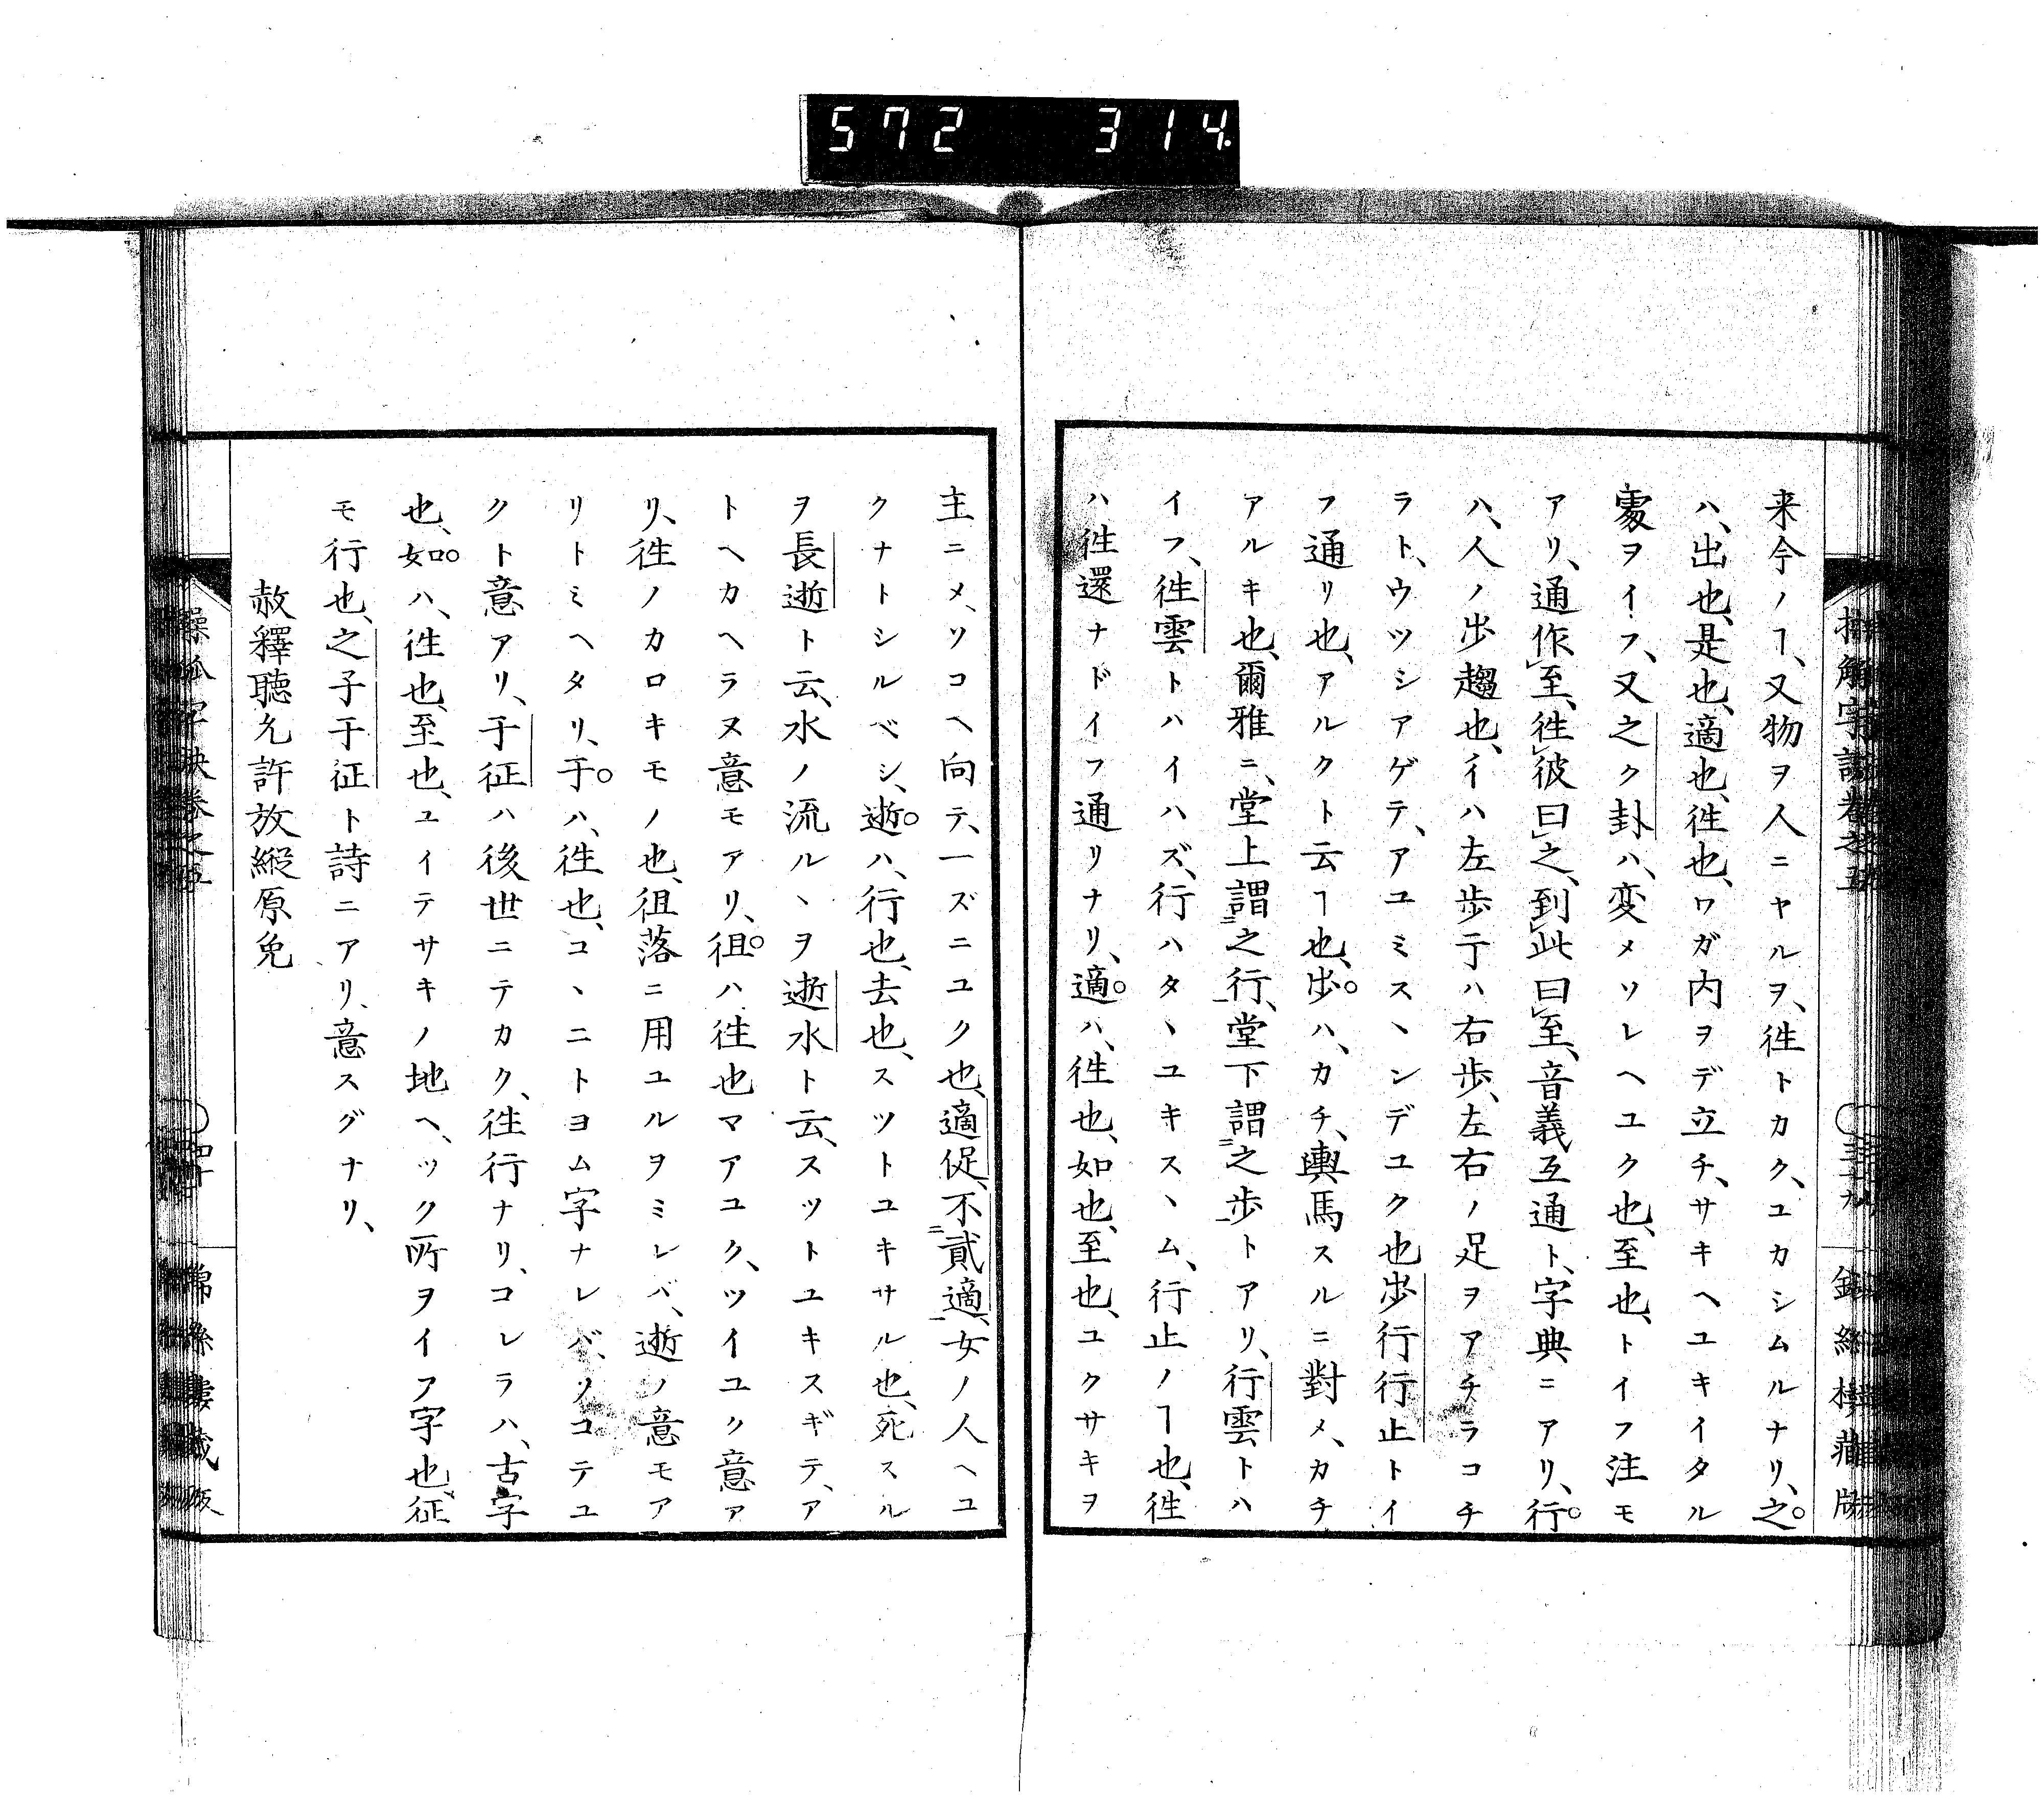 572 314.
来今ノヿ、又物ヲ人ニヤルヲ、徃トカク、ユカシムルナリ、之。
ハ、出也、是也、適也、徃也、ワガ内ヲデ立チ、サキヘユキイタル
処ヲイフ、又之ク卦ハ、変メソレヘユク也、至也、トイフ注モ
アリ、通作至、徃彼曰之、到此曰至、音義互通ト、字典ニアリ、行。
ハ、人ノ歩趨也、彳ハ左歩亍ハ右歩、左右ノ足ヲアチラコチ
ラト、ウツシアゲテ、アユミスヽンデユク也歩行行止トイ
フ通リ也、アルクト云ヿ也、歩。ハ、カチ、輿馬スルニ對メ、カチ
アルキ也、爾雅ニ、堂上謂ニ之行一、堂下謂ニ之歩一トアリ、行雲トハ
イフ、徃雲トハイハズ、行ハタヽユキスヽム、行止ノヿ也、徃
ハ徃還ナドイフ通リナリ、適。ハ、徃也、如也、至也、ユクサキヲ
主ニメ、ソコヘ向テ、一ズニユク也、適従、不ニ貳適一、女ノ人ヘユ
クナトシルベシ、逝。ハ、行也、去也、スツトユキサル也、死スル
ヲ長逝ト云、水ノ流ルヽヲ逝水ト云、スツトユキスギテ、ア
トヘカヘラヌ意モアリ、徂。ハ徃也マアユク、ツイユク意ア
リ、徃ノカロキモノ也、徂落ニ用ユルヲミレバ、逝ノ意モア
リトミヘタリ、于。ハ、徃也、コヽニトヨム字ナレバ、ソコテユ
クト意アリ、于征ハ後世ニテカク、徃行ナリ、コレラハ、古字
也、如。ハ、徃也、至也、ユイテサキノ地ヘ、ツク所ヲイフ字也、征
モ行也、之子于征ト詩ニアリ、意スグナリ、
赦釋聽允許放縱原免